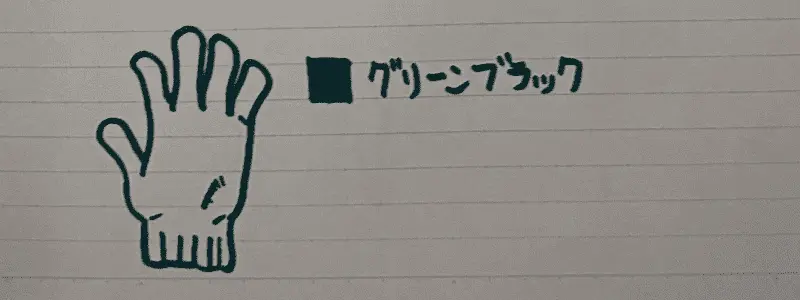 グリーンブラック